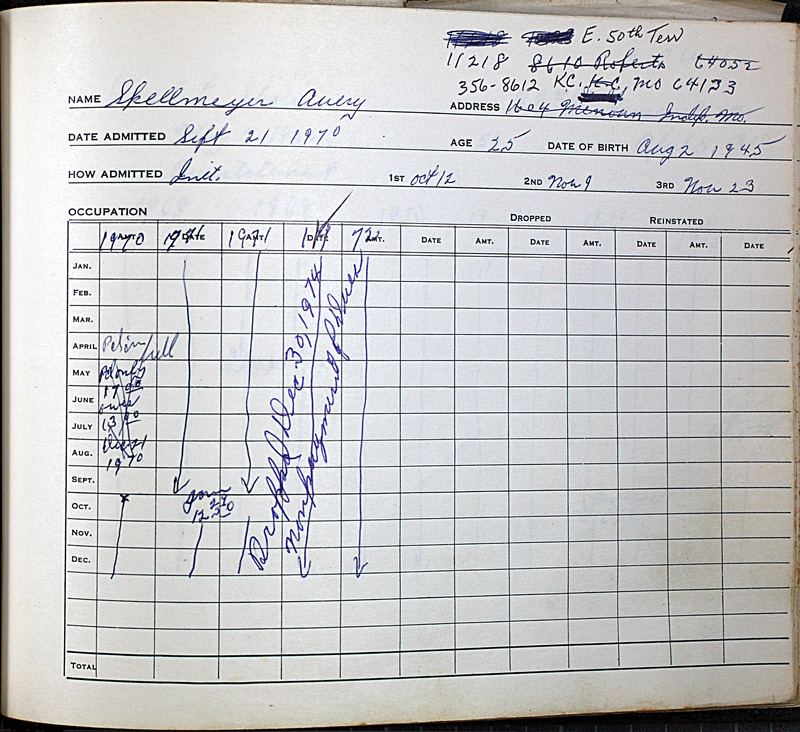 E. 50th Terr
11218 8610 Roberts 64052
356-8612 KC. K.C, MO 64133
NAME Skellmeyer Avery ADDRESS 1604 Indep. Mo.
DATE ADMITTED Sept 21 1970 AGE 25 DATE OF BIRTH Aug 2 1945
HOW ADMITTED Init. 1ST Oct 12 2ND Nov 9 3RD Nov 23
OCCUPATION DROPPED REINSTATED
1970 AMT. DATE 1971 AMT. DATE 72 AMT. DATE AMT. DATE AMT. DATE AMT. DATE
JAN.
FEB.
MAR.
APRIL Pd in full
MAY Pd only
17.00
JUNE owes
JULY 13.00
AUG. Dec 21
1970
SEPT.
OCT.
12.50
NOV.
DEC.
TOTAL
Dropped Dec. 30, 1974
nonpayment of Dues